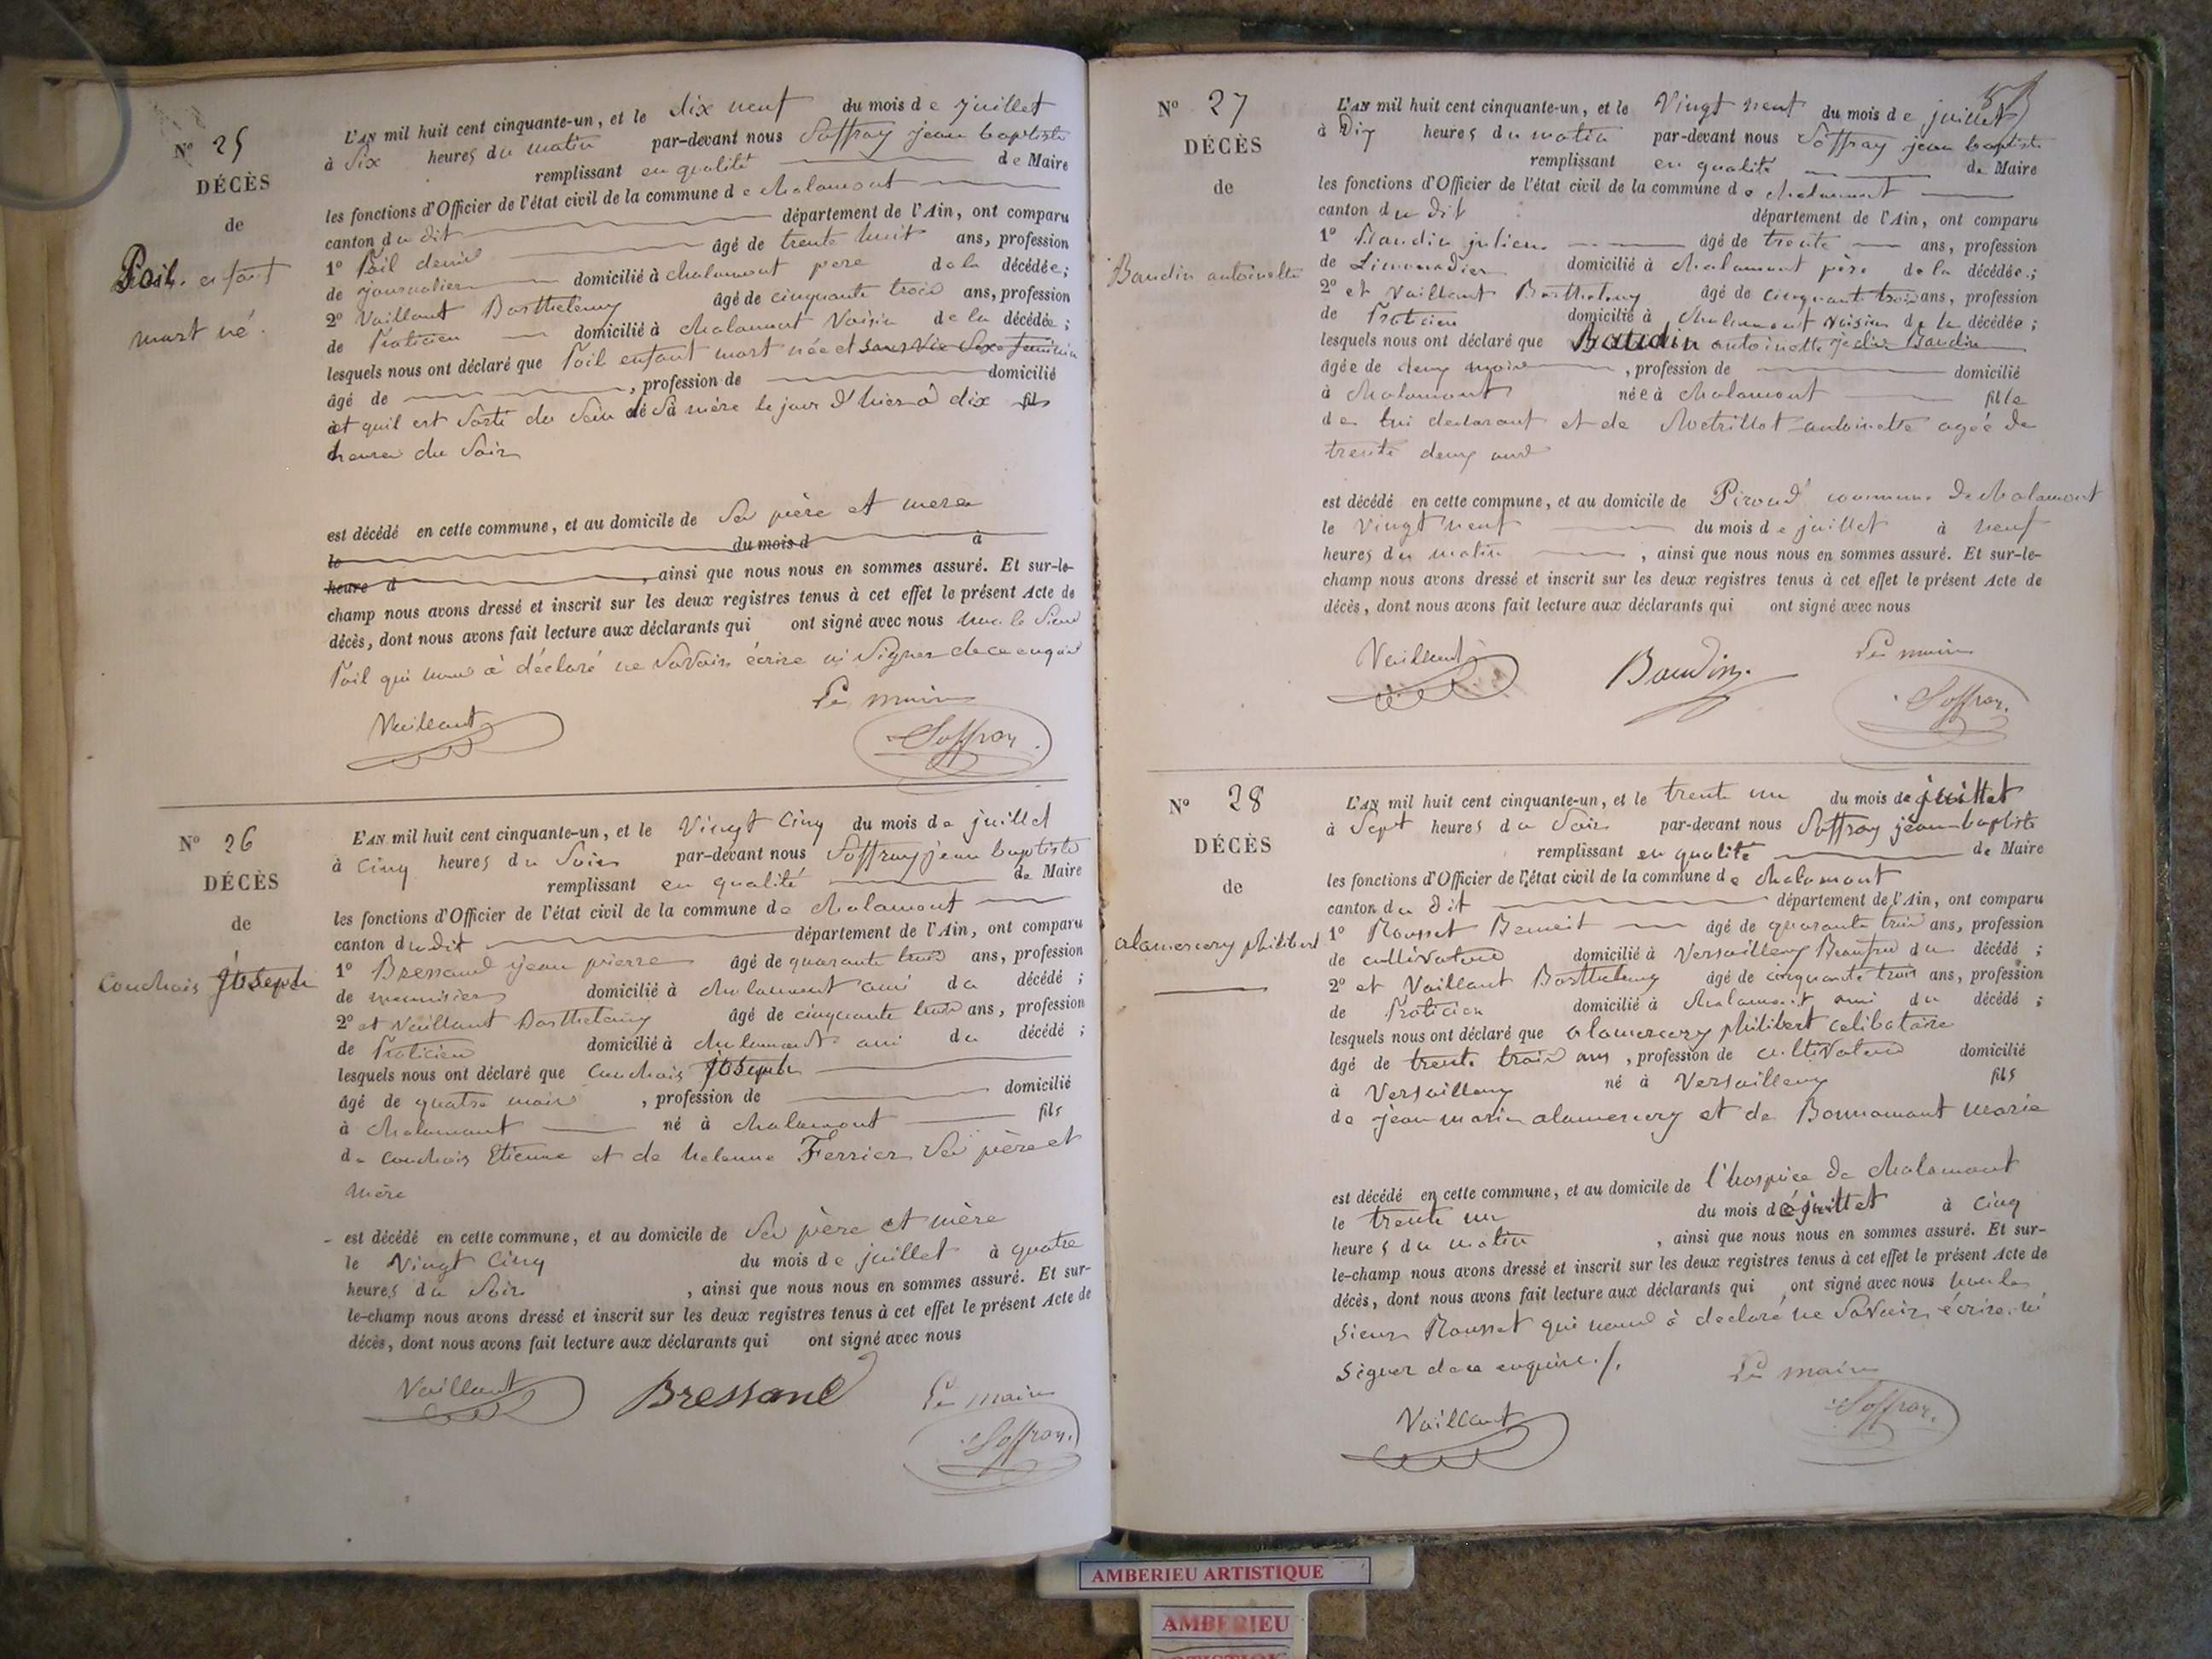 Nº 25
DÉCÈS
de
Poil enfant
mort né.
L'AN mil huit cent cinquante-un, et le dix neuf du mois de juillet
à Six heures du matin par-devant nous Soffray jean baptiste
remplissant en qualité de Maire
les fonctions d'Officier de l'état civil de la commune de chalamont
canton du dit département de l'Ain, ont comparu
1º Poil denis âgé de trente huit ans, profession
de journalier domicilié à chalamont pere de la décédée;
2º Vaillant Barthelemy âgé de cinquante trois ans, profession
de Praticien domicilié à chalamont Voisin de la décédée;
lesquels nous ont déclaré que Poil enfant mort née et sans Vie Sexe feminin
âgé de , profession de domicilié
à et quil est Sorti du Sein de Sà mère le jour d'hier à dix fil
heures du Soir
est décédé en cette commune, et au domicile de Ses père et mere
le du mois d à
heure d , ainsi que nous nous en sommes assuré. Et sur-le-
champ nous avons dressé et inscrit sur les deux registres tenus à cet effet le présent Acte de
décès, dont nous avons fait lecture aux déclarants qui ont signé avec nous non le Sieur
Poil qui nous à déclaré ne Savoir écrire ni Signer de ce enquis
Le maire
Vaillant
Soffray
Nº 26
DÉCÈS
de
Couchois Joseph
L'AN mil huit cent cinquante-un, et le Vingt Cinq du mois de juillet
à Cinq heures du Soir par-devant nous Soffray jean baptiste
remplissant en qualité de Maire
les fonctions d'Officier de l'état civil de la commune de chalamont
canton du dit département de l'Ain, ont comparu
1º Bressand jean pierre âgé de quarante trois ans, profession
de menuisier domicilié à chalamont ami du décédé;
2º et Vaillant Barthelemy âgé de cinquante trois ans, profession
de Praticien domicilié à chalamont ami du décédé;
lesquels nous ont déclaré que Couchois Joseph
âgé de quatre mois , profession de domicilié
à chalamont né à chalamont fils
de Couchois Etienne et de helenne Ferrier Ses père et
mère
est décédé en cette commune, et au domicile de Ses père et mère
le Vingt Cinq du mois de juillet à quatre
heures du Soir , ainsi que nous nous en sommes assuré. Et sur-
le-champ nous avons dressé et inscrit sur les deux registres tenus à cet effet le présent Acte de
décès, dont nous avons fait lecture aux déclarants qui ont signé avec nous
Vaillant Bressand Le maire
Soffray
Nº 27
DÉCÈS
de
Baudin antoinette
L'AN mil huit cent cinquante-un, et le Vingt neuf du mois de juillet
à Dix heures du matin par-devant nous Soffray jean baptiste
remplissant en qualité de Maire
les fonctions d'Officier de l'état civil de la commune de chalamont
canton du dit département de l'Ain, ont comparu
1º Baudin julien âgé de trente ans, profession
de Limonadier domicilié à chalamont père de la décédée;
2º et Vaillant Barthelemy âgé de cinquante trois ans, profession
de Praticien domicilié à chalamont Voisin de la décédée;
lesquels nous ont déclaré que Baudin antoinette
âgée de deux mois , profession de domicilié
à chalamont née à chalamont fille
de lui declarant et de Metrillot antoinette agée de
trente deux ans
est décédé en cette commune, et au domicile de Piroud commune de chalamont
le Vingt neuf du mois de juillet à neuf
heures du matin , ainsi que nous nous en sommes assuré. Et sur-le-
champ nous avons dressé et inscrit sur les deux registres tenus à cet effet le présent Acte de
décès, dont nous avons fait lecture aux déclarants qui ont signé avec nous
Vaillant Baudin. Le maire
Soffray.
Nº 28
DÉCÈS
de
alamercery philibert
L'AN mil huit cent cinquante-un, et le trente un du mois de juillet
à Sept heures du Soir par-devant nous Soffray jean baptiste
remplissant en qualité de Maire
les fonctions d'Officier de l'état civil de la commune de chalamont
canton du dit département de l'Ain, ont comparu
1º Rousset Benoit âgé de quarante trois ans, profession
de cultivateur domicilié à Versailleux Beaufrere du décédé;
2º et Vaillant Barthelemy âgé de cinquante trois ans, profession
de Praticien domicilié à chalamont ami du décédé;
lesquels nous ont déclaré que alamercery philibert celibataire
âgé de trente trois ans , profession de cultivateur domicilié
à Versailleux né à Versailleux fils
de jean marie alamercery et de Bonnamant marie
est décédé en cette commune, et au domicile de l'hospice de chalamont
le trente un du mois de juillet à Cinq
heures du matin , ainsi que nous nous en sommes assuré. Et sur-
le-champ nous avons dressé et inscrit sur les deux registres tenus à cet effet le présent Acte de
décès, dont nous avons fait lecture aux déclarants qui ont signé avec nous non le
Sieur Rousset qui nous à declaré ne Savoir écrire ni
Signer de ce enquise./.
Le maire
Vaillant
Soffray.
AMBERIEU ARTISTIQUE
AMBERIEU